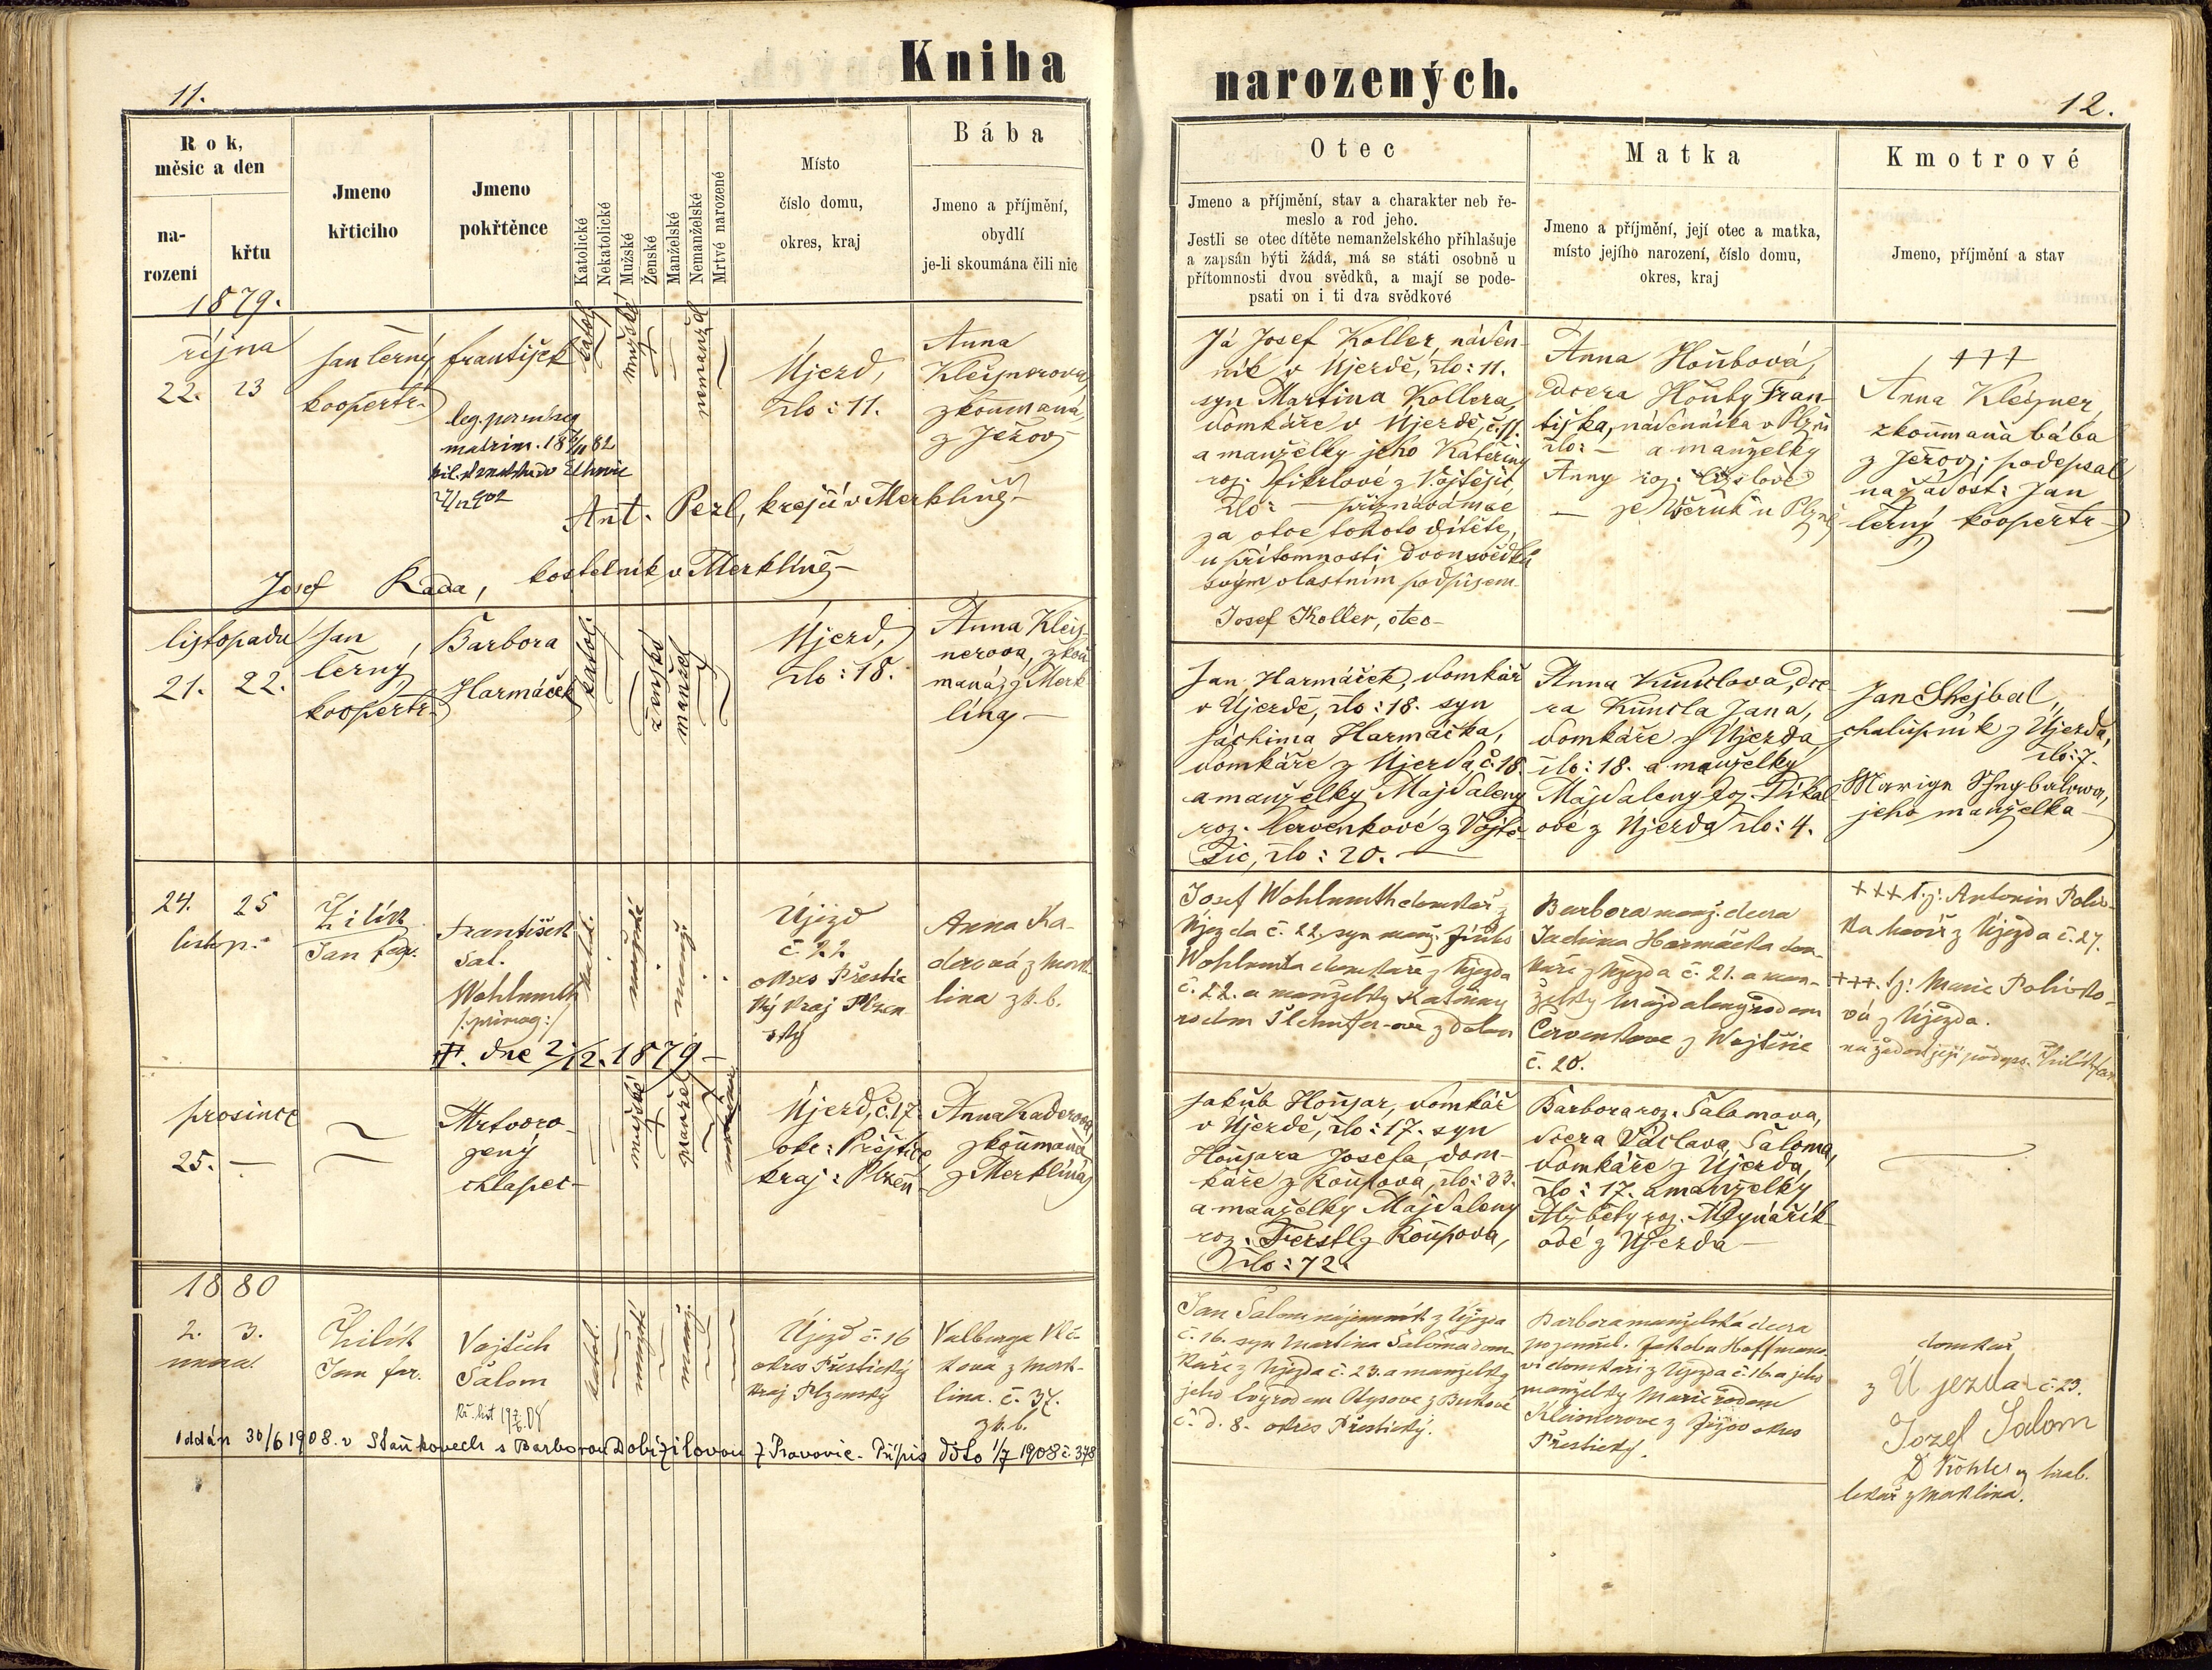 Kniha
11.
Rok,
měsíc a den
na-
rození
křtu
Jmeno
křticího
Jmeno
pokřtěnce
Katolické
Nekatolické
Mužské
Ženské
Manželské
Nemanželské
Mrtvé narozené
Místo
číslo domu,
okres, kraj
Bába
Jmeno a příjmění,
obydlí
je-li skoumána čili nic
1879.
října
22. 23
Jan Černý,
koopertr.
František
leg. per subseq
matrim. 18 7/11 82
27/12 902
katol
mužské
nemanžel
Újezd,
člo: 11.
Anna
Kleisnerova,
zkoumaná,
z Ježov
Ant. Pezl, krejčí v Merklíně
Josef Rada, kostelník v Merklíně
listopadu
21. 22.
Jan
Černý,
koopertr.
Barbora
Harmáček
katol.
ženské
manžel
Újezd,
člo: 18.
Anna Kleis-
nerova, zkou-
maná, z Merk
lína
24. 25
listop.
Žilík
Jan far.
František
Sal.
Wohlmuth
/: primog :/
katol.
mužské
manž.
Újezd
č. 22
okres Přestic
ký kraj Plzen
ský
Anna Ka-
derová z Merk-
lína zk. b.
†. dne 2/12. 1879.
prosince
25. —
Mrtvoro-
zený
chlapec
mužské
manžel
Újezd, č. 17.
okr: Přeštice
kraj: Plzeň
Anna Kaderova,
zkoumaná
z Merklína
1880
2. 3.
února
Žilík
Jan far.
Vojtěch
Šalom
katol.
mužské
manž.
Újezd č. 16
okres Přestický
kraj Plzenský
Valburga Vlč-
kova z Merk-
lína. č. 37.
zk. b.
Oddán 30/6 1908. v Staňkovech s Barborou Dobizilovou z Pravovic. Přípis dto 1/7 1908 č. 378
narozených.
12.
Otec
Jmeno a příjmění, stav a charakter neb ře-
meslo a rod jeho.
Jestli se otec dítěte nemanželského přihlašuje
a zapsán býti žádá, má se státi osobně u
přítomnosti dvou svědků, a mají se pode-
psati on i ti dva svědkové
Matka
Jmeno a příjmění, její otec a matka,
místo jejího narození, číslo domu,
okres, kraj
Kmotrové
Jmeno, příjmění a stav
Já Josef Koller, náden-
ník v Újezdě, člo: 11.
syn Martina Kollera,
domkáře v Újezdě, č. 11.
a manželky jeho Kateřiny
roz. Fikrlové z Vojtěšic,
člo: — přiznávám se
za otce tohoto dítěte,
u přítomnosti dvou svědků
svým vlastním podpisem
Josef Koller, otec
Anna Houbová,
dcera Houby Fran-
tiška, nádenníka v Plzni
člo: — a manželky
Anny roz.
— ze Všerub u Plzně
+++
Anna Kleisner,
zkoumaná bába
z Ježov; podepsal
na žádost: Jan
Černý koopertr
Jan Harmáček, domkář
v Újezdě, člo: 18. syn
Jáchima Harmáčka,
domkáře z Újezda č. 18.
a manželky Majdaleny
roz. Červenkové z Vojtě-
šic, člo: 20.
Anna Kunclova, dce-
ra Kuncla Jana,
domkáře z Újezda,
člo: 18. a manželky
Majdaleny roz. Pikal
ové z Újezda člo: 4.
Jan Shejbal,
chalupník z Újezda,
člo: 7.
Marige Shegbalowa,
jeho manželka
Josef Wohlmuth domkář z
Újezda č. 22. syn manž. Jiřího
Wohlmuta domkáře z Újezda
č. 22. a manželky Kateřiny
Barbora manž. dcera
Jachima Harmáčka dom-
káře z Újezda č. 21. a man-
želky Majdaleny rodem
Červenkove z Wojtěšic
č. 20.
+++ tj: Antonín Poliv-
ka z Újezda č. 27.
+++ tj: Marie Polivko-
vá z Újezda.
na žádost její podeps. Žilík far
Jakub Houzar, domkář
v Újezdě, člo: 17. syn
Houzara Josefa, dom-
káře z Roupova, člo: 33.
a manželky Majdaleny
roz. Ferstl z Roupova,
člo: 72.
Barbora roz. Šalomova,
dcera Václava Šaloma,
domkáře z Újezda,
člo: 17. a manželky
Alžběty roz. Mlynářík-
ové z Újezda
Jan Šalom nájemník z Újezda
č. 16. syn Martina Šaloma dom-
káře z Újezda č. 23. a manželky
č. d. 8. okres Přestický.
Barbora manželská dcera
pozemřel. Jakoba Hoffmano-
vi domkáři z Újezda č. 16. a jeho
manželky Marie rodem
Kleisnerove z Ježov okres
Přestický.
domkář
z Újezda č. 23.
Jozef Salom
lekař z Merklína.